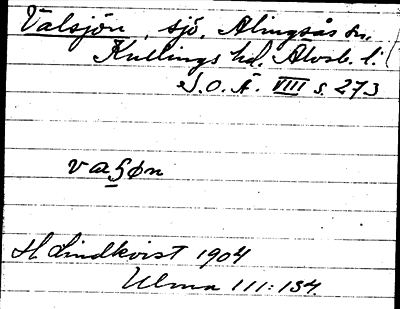 Valsjön, sjö, Alingsås sn.
Kullings hd. Älvsb. l.
S.O.Ä. VIII s. 273
vaʂøn
H Lindkvist 1904
Ulma 111:134